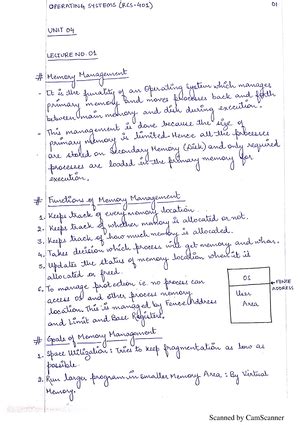 OPERATING SYSTEMS (RCS-401)
01
UNIT 04
LECTURE NO. 01
# Memory Management
- It is the funality of an Operating System which manages
primary memory and moves processes back and forth
between main memory and disk during execution.
- This management is done because the size of
primary memory is limited. Hence all the processes
are stored on Secondary Memory (Disk) and only required
processes are loaded in the primary memory for
execution.
# Functions of Memory Management
1. Keeps track of every memory location.
2. Keeps track of whether memory is allocated or not.
3. Keeps track of how much memory is allocated.
4. Takes decision which process will get memory and when.
5. Updates the status of memory location when it is
allocated or freed.
6. To manage protection i.e. no process can
access OS and other process memory
location. This is managed by Fence Address
and Limit and Base Register.
OS
User
Area
FENCE
ADDRESS
# Goals of Memory Management
1. Space Utilization : Tries to keep fragmentation as low as
possible
2. Run larger program in smaller Memory Area : By Virtual
Memory.
Scanned by CamScanner